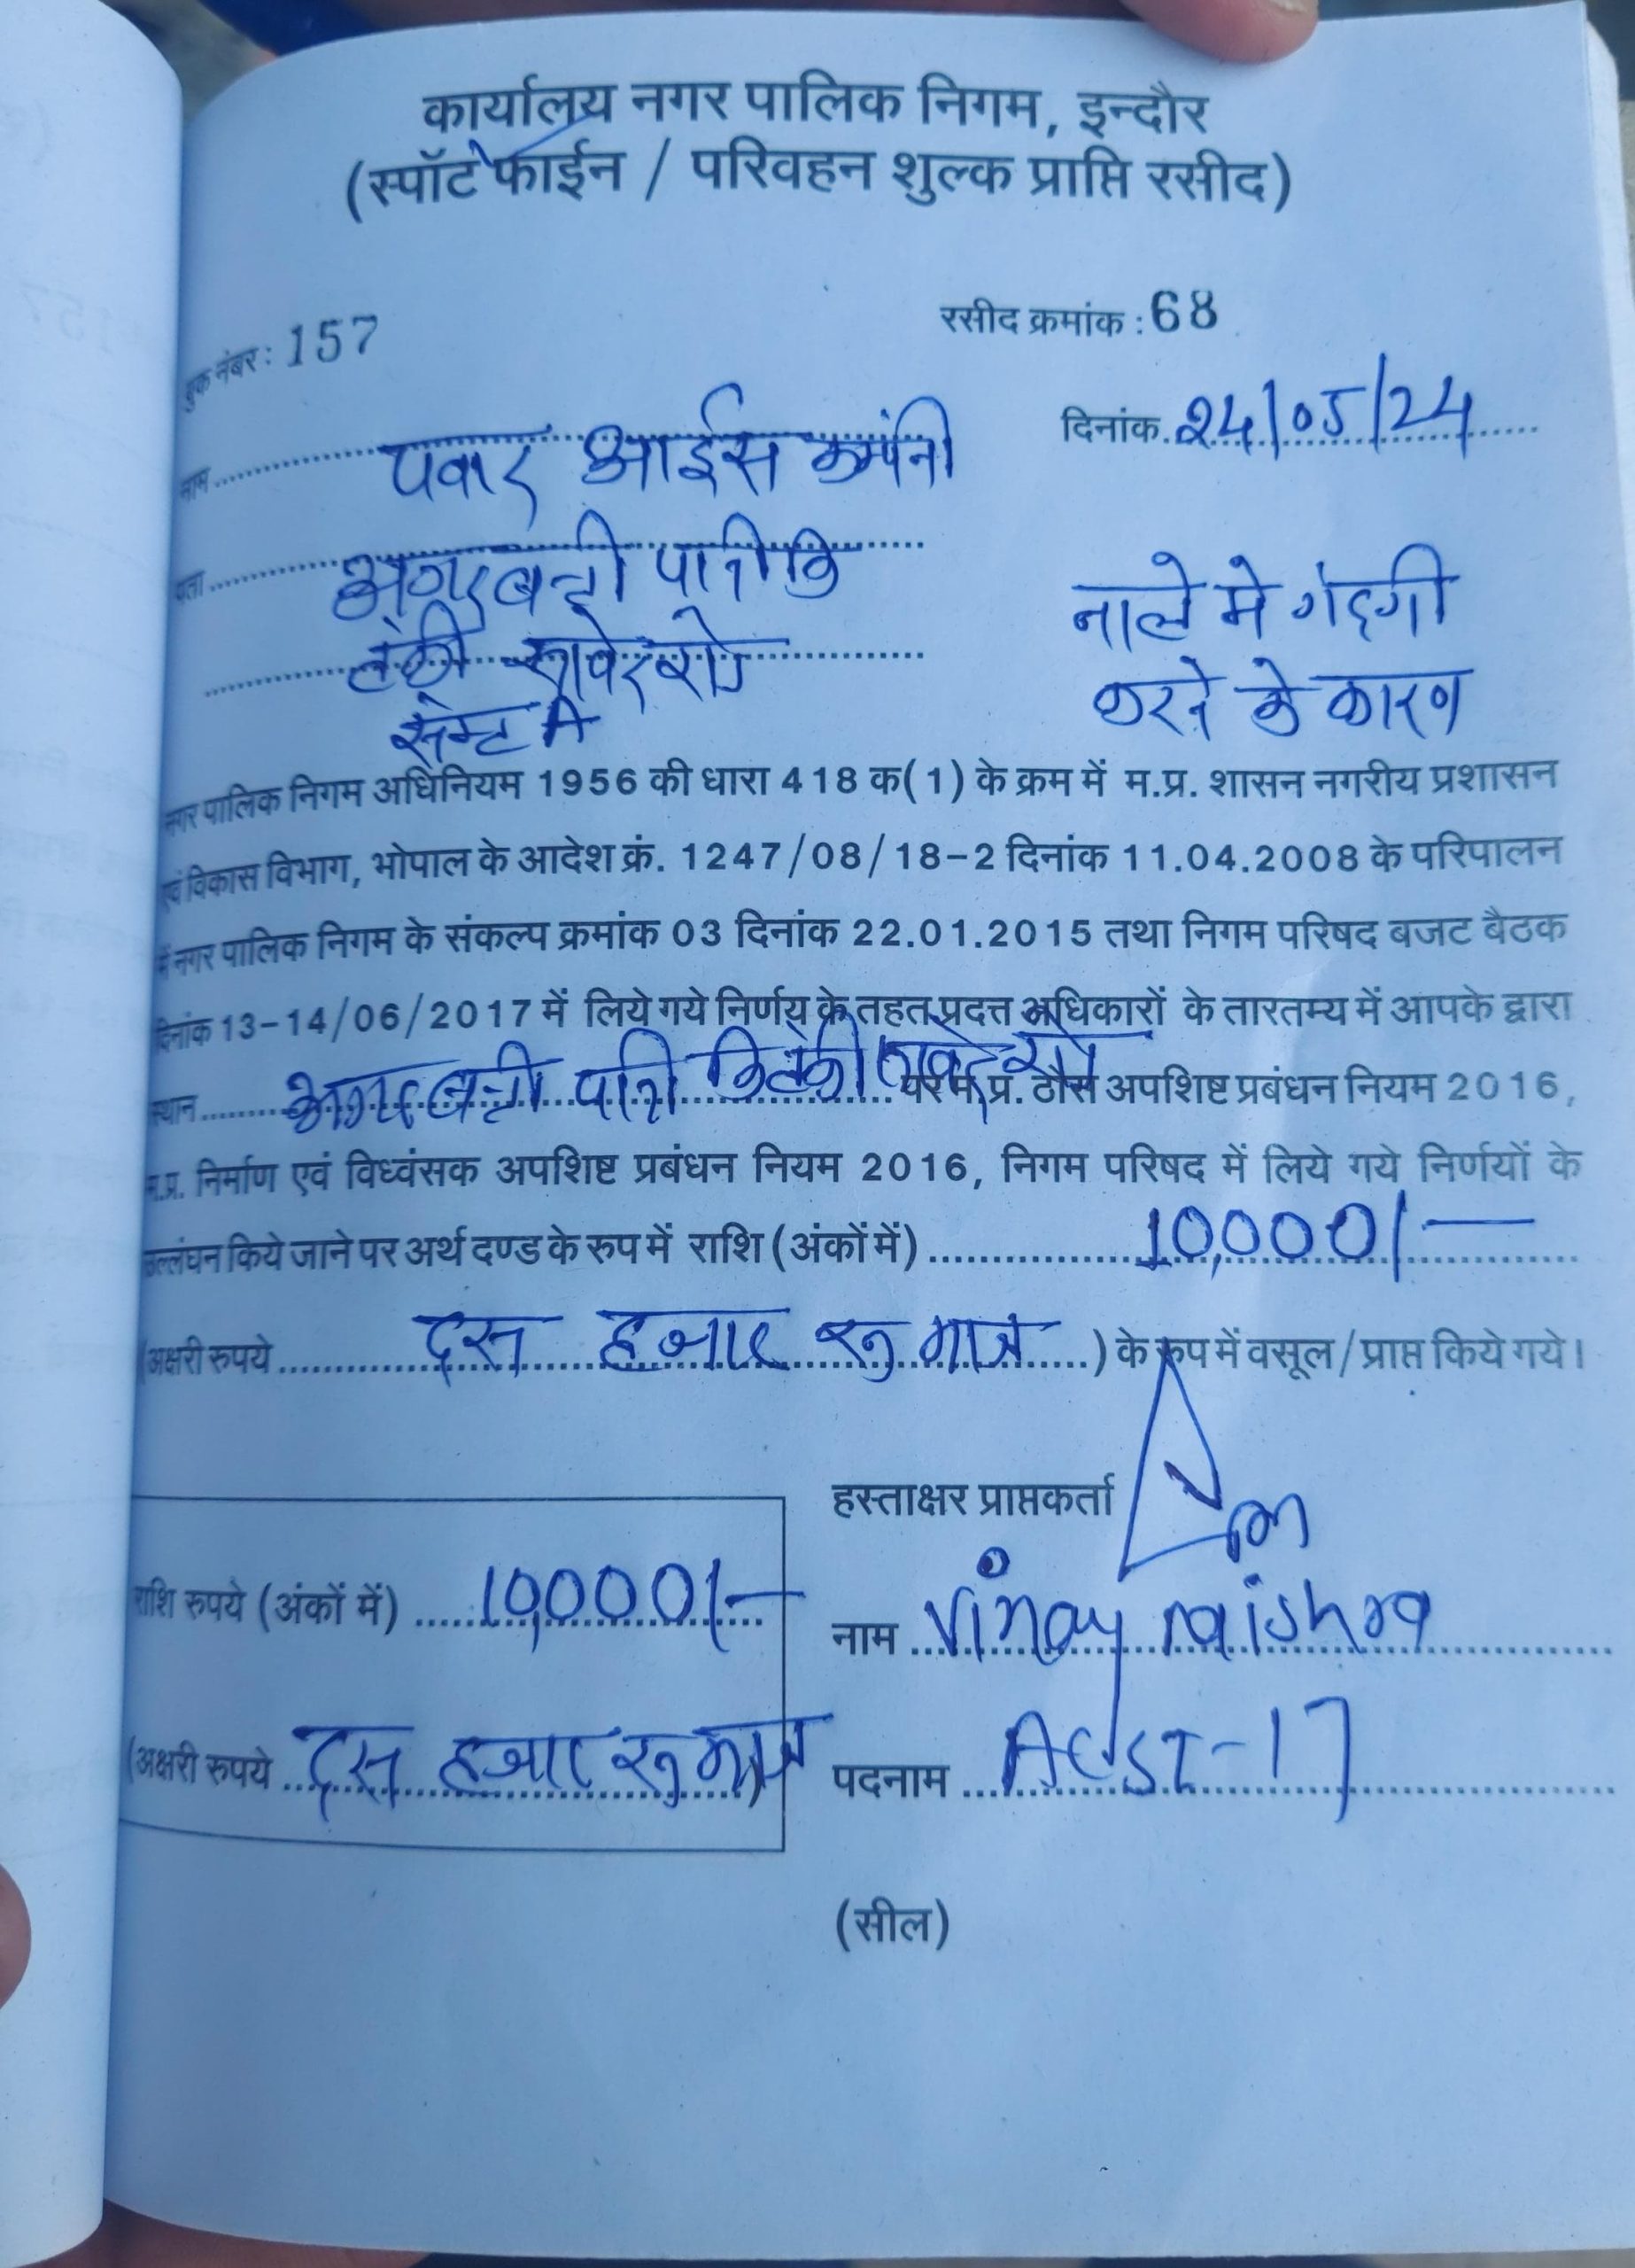 कार्यालय नगर पालिक निगम, इन्दौर
(स्पॉट फाईन / परिवहन शुल्क प्राप्ति रसीद)
बुक नंबर : 157
रसीद क्रमांक : 68
दिनांक 24/05/24
नाम पवार आईस कम्पंनी
पता अगरबत्ती पानी कि
टंकी सावेर रोड
सेक्ट A
नाले मे गंदगी
करने के कारण
नगर पालिक निगम अधिनियम 1956 की धारा 418 क(1) के क्रम में म.प्र. शासन नगरीय प्रशासन
एवं विकास विभाग, भोपाल के आदेश क्रं. 1247/08/18-2 दिनांक 11.04.2008 के परिपालन
में नगर पालिक निगम के संकल्प क्रमांक 03 दिनांक 22.01.2015 तथा निगम परिषद बजट बैठक
दिनांक 13-14/06/2017 में लिये गये निर्णय के तहत प्रदत्त अधिकारों के तारतम्य में आपके द्वारा
स्थान अगरबत्ती पानी कि टंकी सावेर रोड पर म.प्र. ठौस अपशिष्ट प्रबंधन नियम 2016,
म.प्र. निर्माण एवं विध्वंसक अपशिष्ट प्रबंधन नियम 2016, निगम परिषद में लिये गये निर्णयों के
उल्लंघन किये जाने पर अर्थ दण्ड के रुप में राशि (अंकों में) 10,000/-
(अक्षरी रुपये दस हजार रु मात्र) के रुप में वसूल/प्राप्त किये गये।
हस्ताक्षर प्राप्तकर्ता
राशि रुपये (अंकों में) 10,000/-
नाम Vinay mishra
(अक्षरी रुपये दस हजार रु मात्र)
पदनाम
(सील)